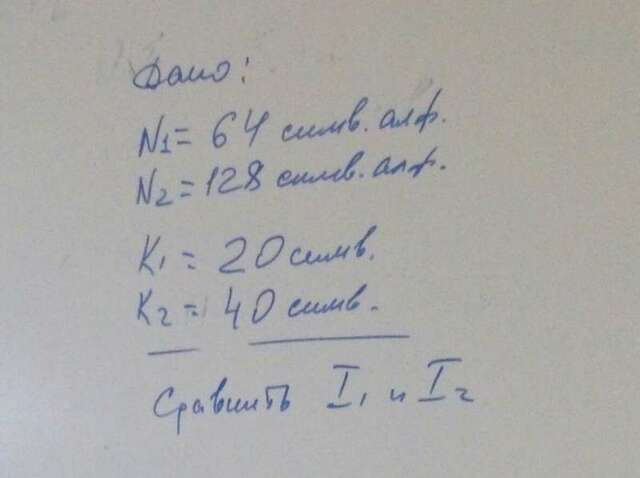 Дано:
N1 = 64 симв. алф.
N2 = 128 симв. алф.
K1 = 20 симв.
K2 = 40 симв.
Сравнить I1 и I2